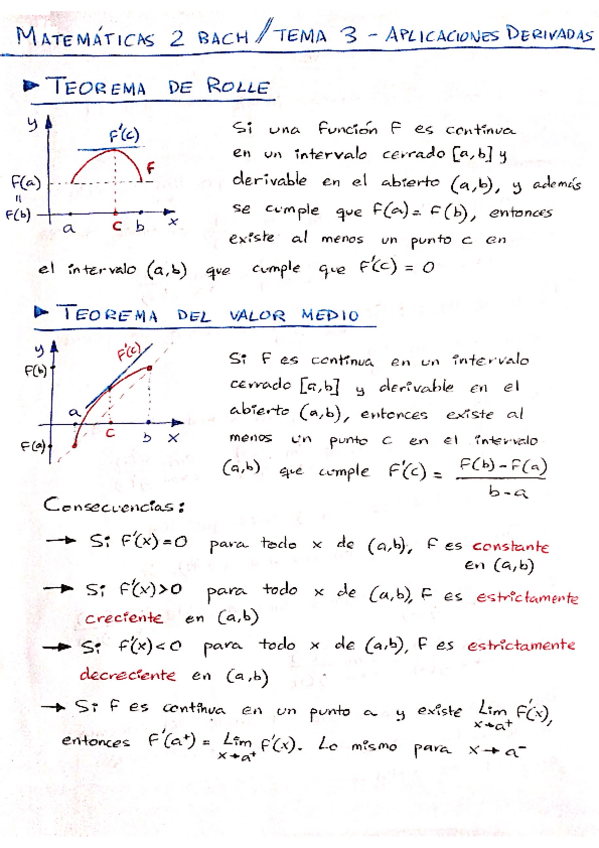 MATEMÁTICAS 2 BACH / TEMA 3 - APLICACIONES DERIVADAS
► TEOREMA DE ROLLE
y
F'(c)
F
F(a)
=
F(b)
a c b x
Si una función F es continua
en un intervalo cerrado [a,b] y
derivable en el abierto (a,b), y además
se cumple que F(a) = F(b), entonces
existe al menos un punto c en
el intervalo (a,b) que cumple que F'(c) = 0
► TEOREMA DEL VALOR MEDIO
y
F'(c)
F(b)
a
c b x
F(a)
Si F es continua en un intervalo
cerrado [a,b] y derivable en el
abierto (a,b), entonces existe al
menos un punto c en el intervalo
(a,b) que cumple F'(c) = F(b) - F(a) / b - a
Consecuencias:
→ Si F'(x)=0 para todo x de (a,b), F es constante
en (a,b)
→ Si F'(x)>0 para todo x de (a,b), F es estrictamente
creciente en (a,b)
→ Si F'(x)<0 para todo x de (a,b), F es estrictamente
decreciente en (a,b)
→ Si F es continua en un punto a y existe Lim x→a⁺ F'(x),
entonces F'(a⁺) = Lim x→a⁺ F'(x). Lo mismo para x→a⁻